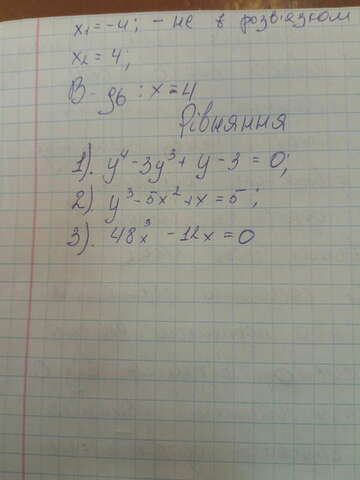 x₁ = -4; - не є розв'язком
x₂ = 4;
В-дь: x = 4
Рівняння
1). y⁴ - 3y³ + y - 3 = 0;
2). y³ - 5x² + x = 5;
3). 48x³ - 12x = 0